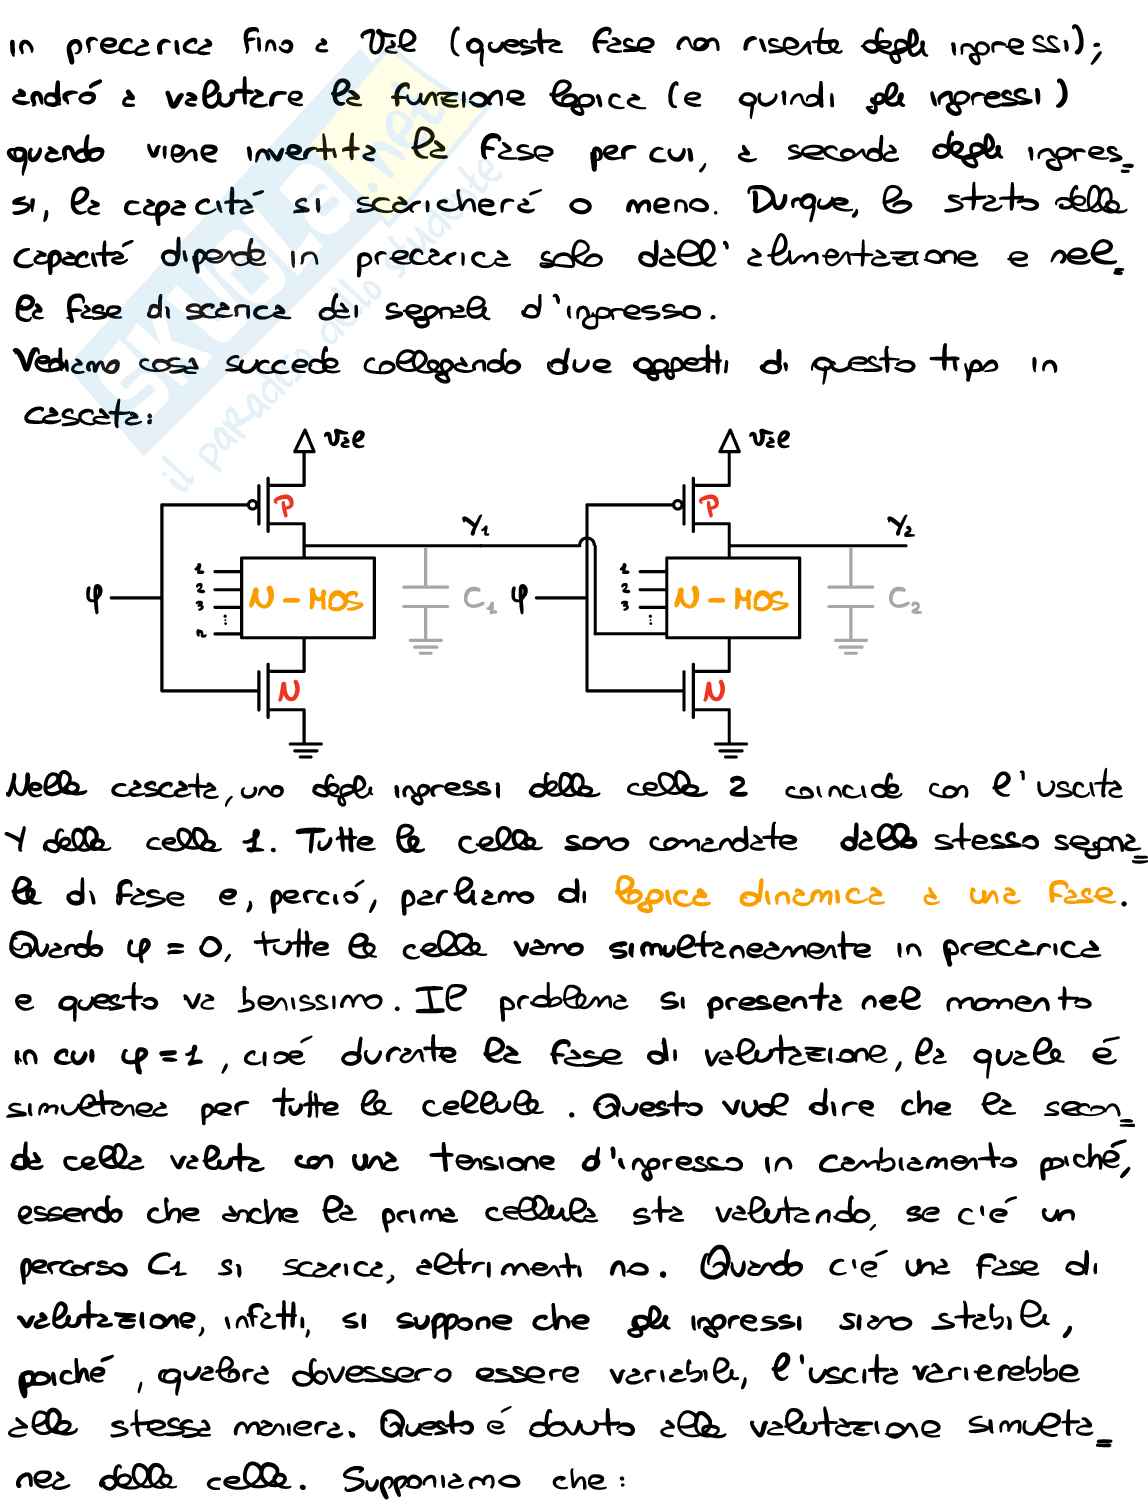 in precarica fino a Val (questa fase non risente degli ingressi);
andró a valutare la funzione logica (e quindi gli ingressi)
quando viene invertita la fase per cui, a seconda degli ingres=
si, la capacitá si scaricherá o meno. Dunque, lo stato della
capacitá dipende in precarica solo dall'alimentazione e nel=
la fase di scarica dai segnali d'ingresso.
Vediamo cosa succede collegando due oggetti di questo tipo in
cascata:
Val Val
P P
Y1 Y2
1 1
2 2
3 3
... ...
n
N-MOS N-MOS
φ C1 φ C2
N N
Nella cascata, uno degli ingressi della cella 2 coincide con l'uscita
Y della cella 1. Tutte le celle sono comandate dallo stesso segna=
le di fase e, perció, parliamo di logica dinamica a una fase.
Quando φ = 0, tutte le celle vanno simultaneamente in precarica
e questo va benissimo. Il problema si presenta nel momento
in cui φ=1, cioé durante la fase di valutazione, la quale é
simultanea per tutte le cellule. Questo vuol dire che la secon=
da cella valuta con una tensione d'ingresso in cambiamento poiché,
essendo che anche la prima cellula sta valutando, se c'é un
percorso C1 si scarica, altrimenti no. Quando c'é una fase di
valutazione, infatti, si suppone che gli ingressi siano stabili,
poiché, qualora dovessero essere variabili, l'uscita varierebbe
alla stessa maniera. Questo é dovuto alla valutazione simulta=
nea della celle. Supponiamo che:
SKUOLA.net
il paradiso dello studente